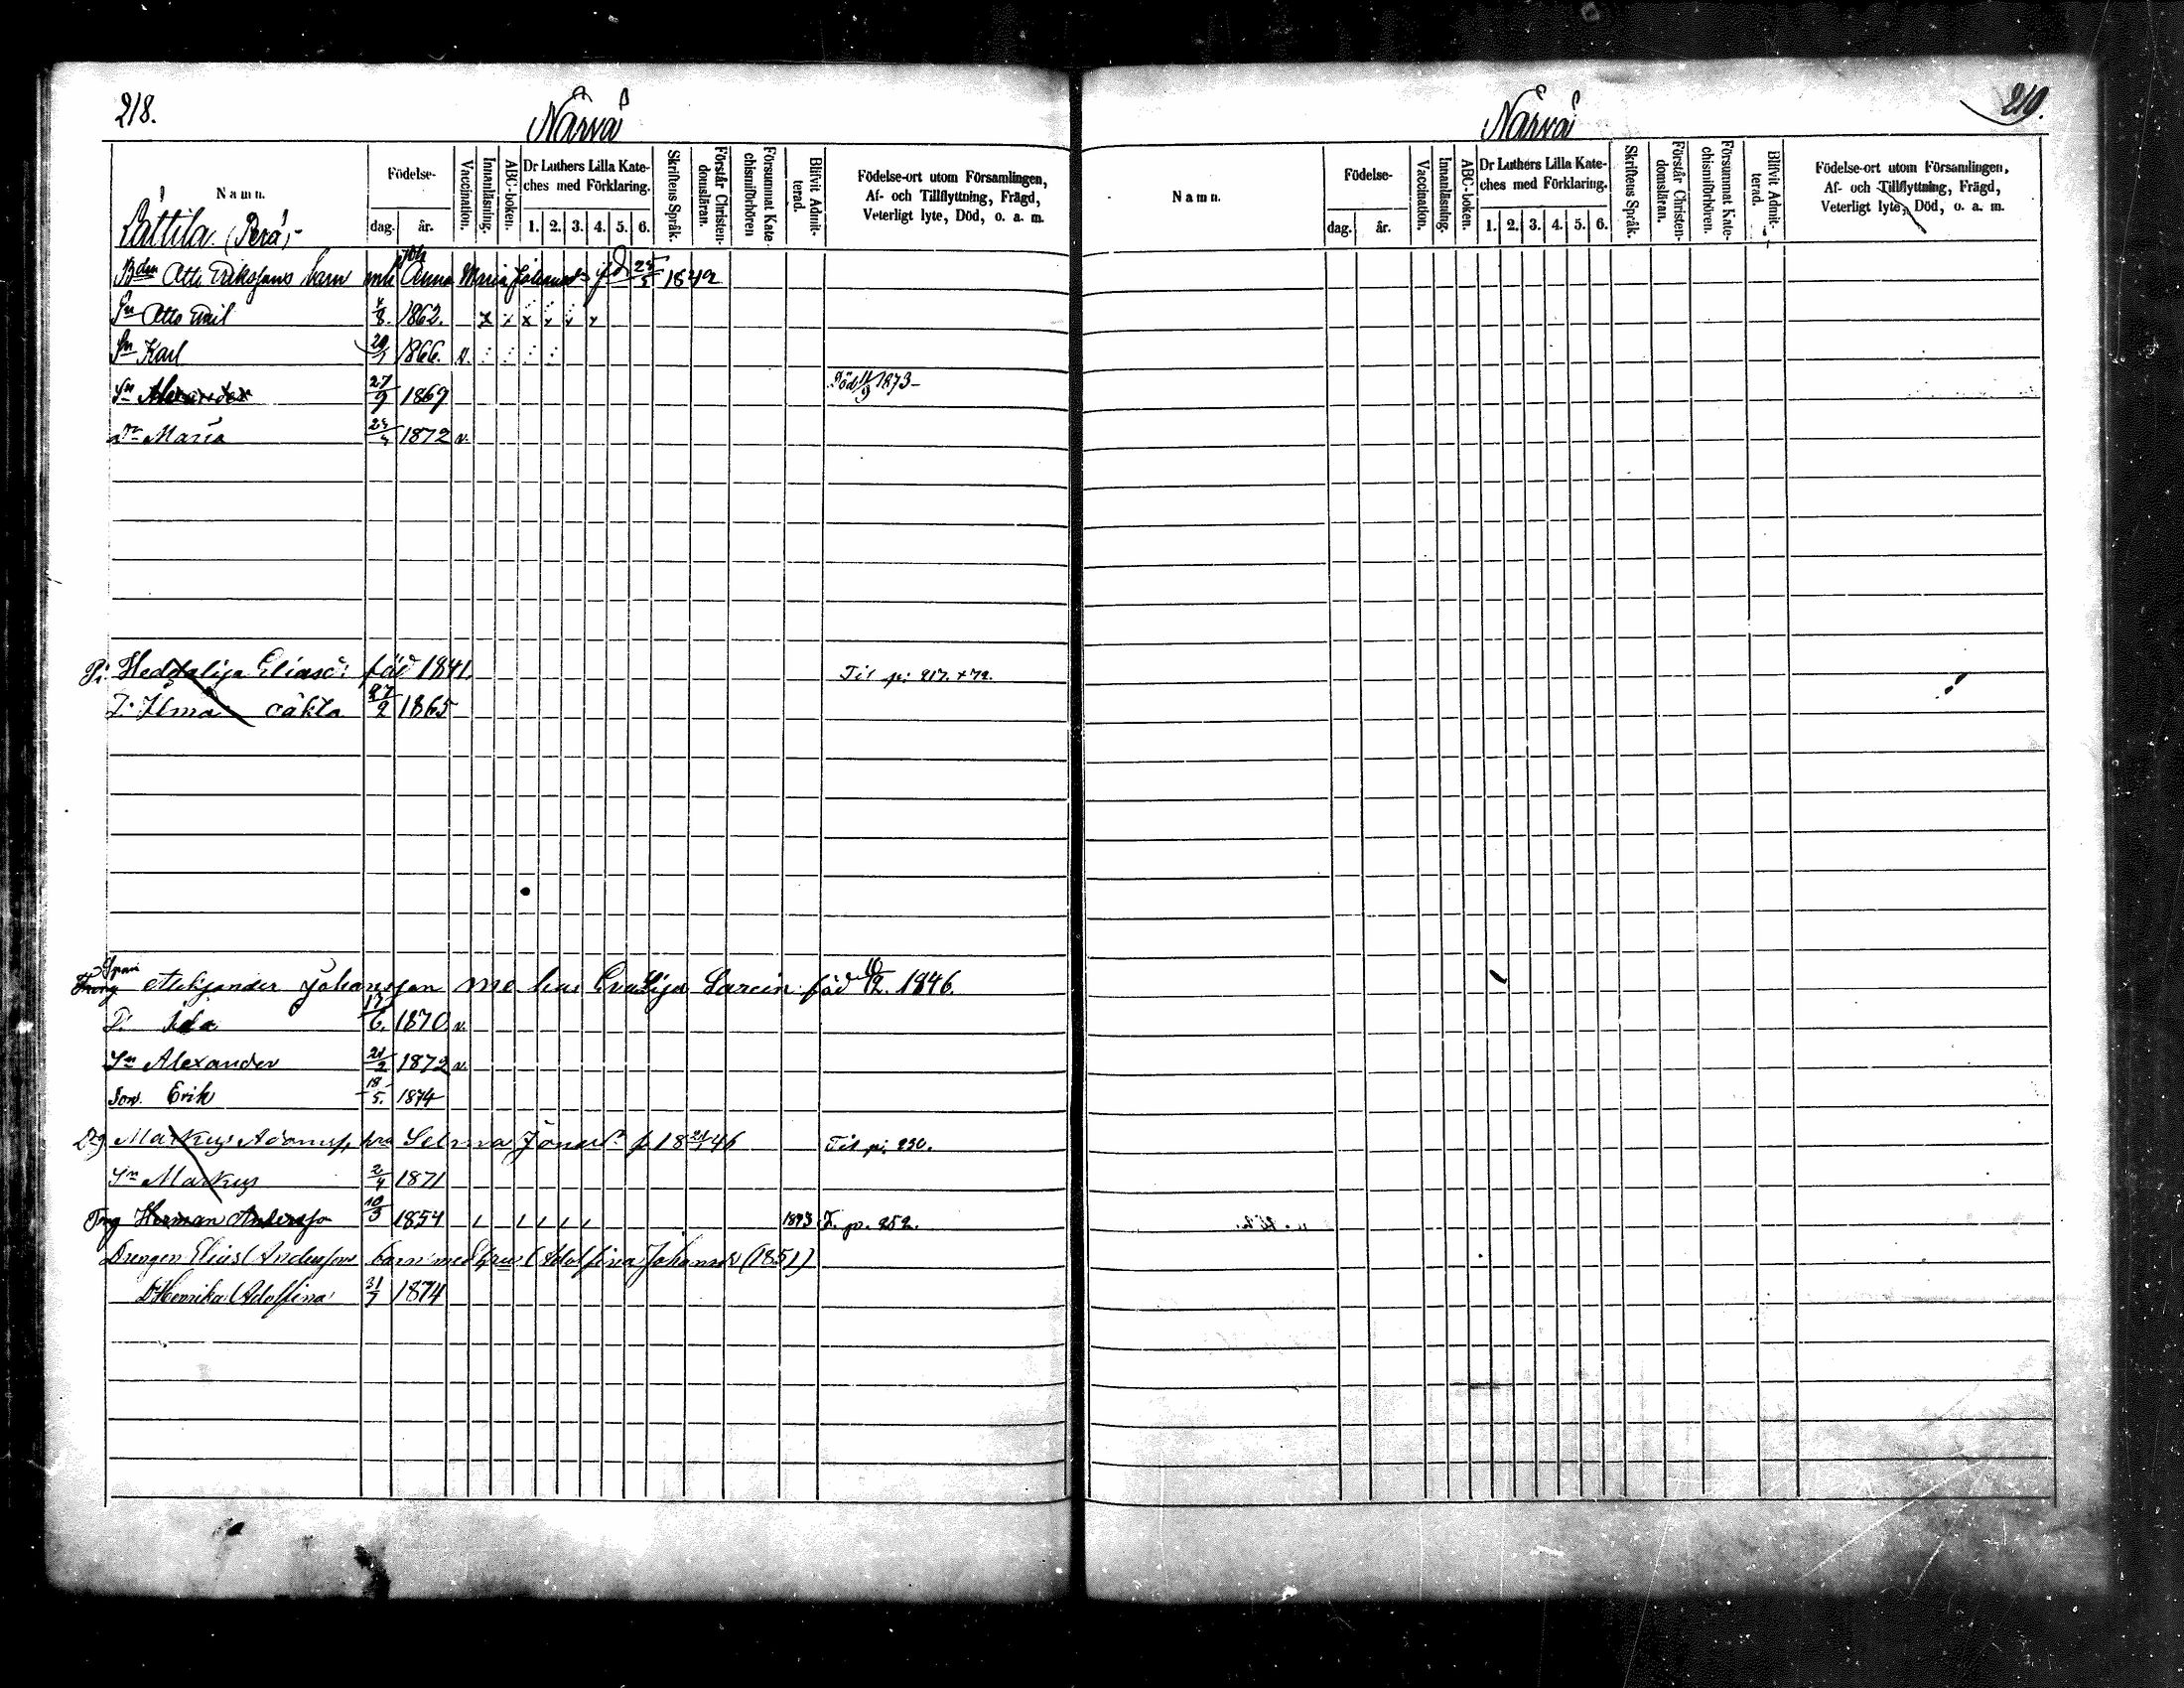 218.
Närvä
Namn.
Födelse-
dag.
år.
Vaccination.
Innanläsning.
ABC-boken.
Dr Luthers Lilla Kate-
ches med Förklaring.
1. 2. 3. 4. 5. 6.
Skriftens Språk.
Förstår Christen-
domsläran.
Försummat Kate-
chismiförhören
Blifvit Admit-
terad.
Födelse-ort utom Församlingen,
Af- och Tillflyttning, Frägd,
Veterligt lyte, Död, o. a. m.
Påttila (Perä)
Bdn Otto Erikssons barn Anna Maria 1842
Sn Otto Emil 4/8. 1862. x x x x x x
Sn Karl 1866. v.
Sn Alexander 27/9 1869 Död 11/9 1873
Dr Maria 1872 v.
Pi: Hedda Lisa Eliasd: föd 1841. Til p: 217. 72.
D. Ilma oäkta 27/2 1865
Spm
Aleksander Johansson Eva Lisa föd 10/12. 1846.
D. Ida 17/6. 1870 v.
Sn Alexander 21/2 1872 v.
Son. Erik 18/5. 1874
Drg Markus Adamss. Selma 1846 Til p: 230.
Sn Markus 2/4 1871
Drg Herman Andersso 10/3 1854 1873 T. p. 252.
Drengen Elias Anderssons barn med Adolfina Johansd (1851)
D Henrika Adolfina 31/7 1874
219.
Närvä
Namn.
Födelse-
dag.
år.
Vaccination.
Innanläsning.
ABC-boken.
Dr Luthers Lilla Kate-
ches med Förklaring.
1. 2. 3. 4. 5. 6.
Skriftens Språk.
Förstår Christen-
domsläran.
Försummat Kate-
chismiförhören.
Blifvit Admit-
terad.
Födelse-ort utom Församlingen,
Af- och Tillflyttning, Frägd,
Veterligt lyte, Död, o. a. m.